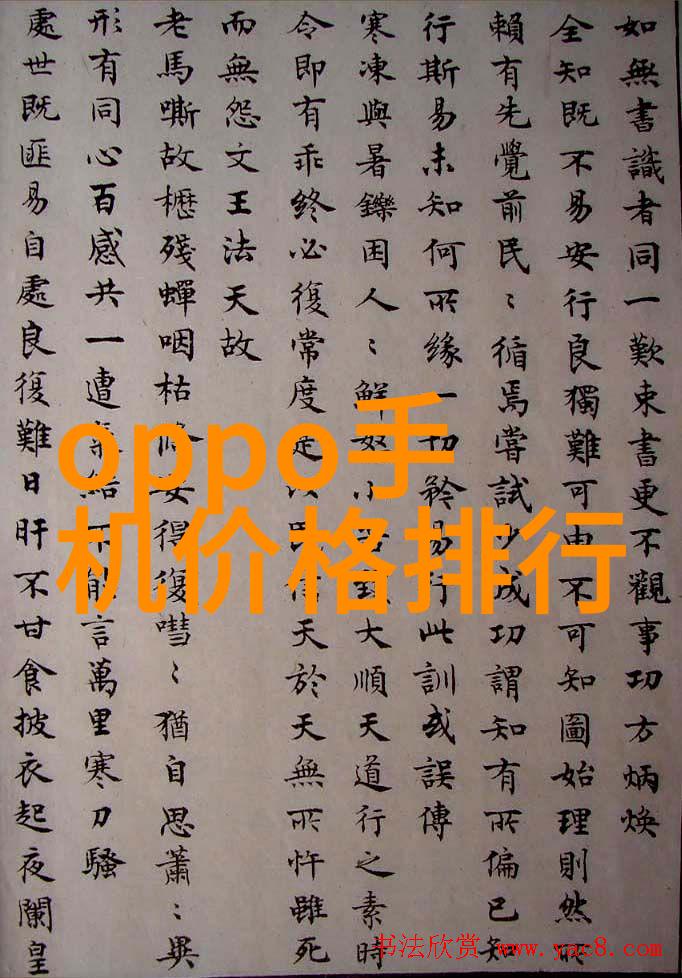 如無書識者同一歎束書更不觀事功方炳煥
全知既不易安行良獨難可由不可知圖始理則然所
賴有先覺前民〻循焉嘗試少成功謂知有所偏已知
行斯易未知何所緣一切矜易行此訓或誤傳
寒凍與暑鑠困人〻鮮怒小大順天道行之素時
令即有乖終必復常度是民信天於天無所忤雖死
而無怨文王法天故
老馬嘶故櫪殘蟬咽枯條安得復嘒〻猶自思蕭〻異
形有同心百感共一遭氣結不能言萬里寒刀騷
處世既匪易自處良復難日旰不甘食披衣起夜闌皇
oppo手
机价格排行
书法欣赏 www.yac8.com